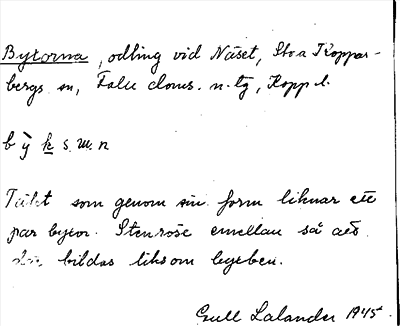 Bytorna, odling vid Näset, Stora Koppar-
bergs sn, Falu doms. n. tg, Kopp. l.
b ỳ k s. w. n
Täkt som genom sin form liknar ett
par byxor. Stenröse emellan så att
det bildas liksom bygeben.
Gull Lalander 1945.